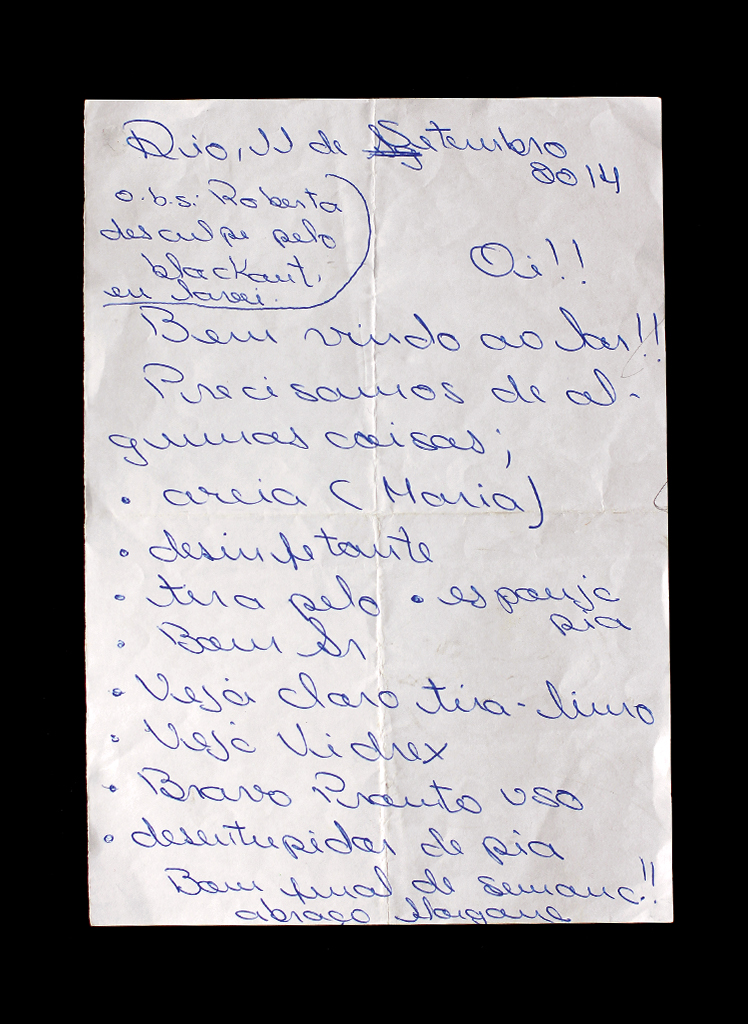 Rio, 11 de Setembro
2014
o.b.s: Roberta
desculpe pelo
blackaut,
eu lavei.
Oi!!
Bem vindo ao lar!!
Precisamos de al-
gumas coisas;
• areia (Maria)
• desinfetante
• tira pelo • esponja
pia
• Bom Ar
• Veja cloro tira-limo
• Veja Vidrex
• Bravo Pronto uso
• desentupidor de pia
Bom final de semana!!
abraço